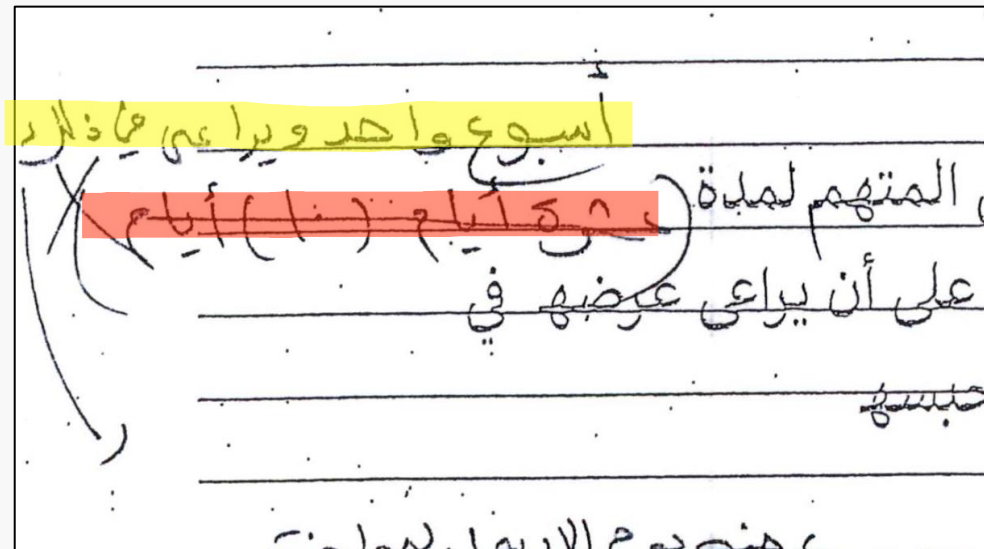 أسبوع واحد ويراعى
المتهم لمدة عشرة أيام (١٠) أيام
على أن يراعى عرضهم في
حبسهم
يوم الأربعاء